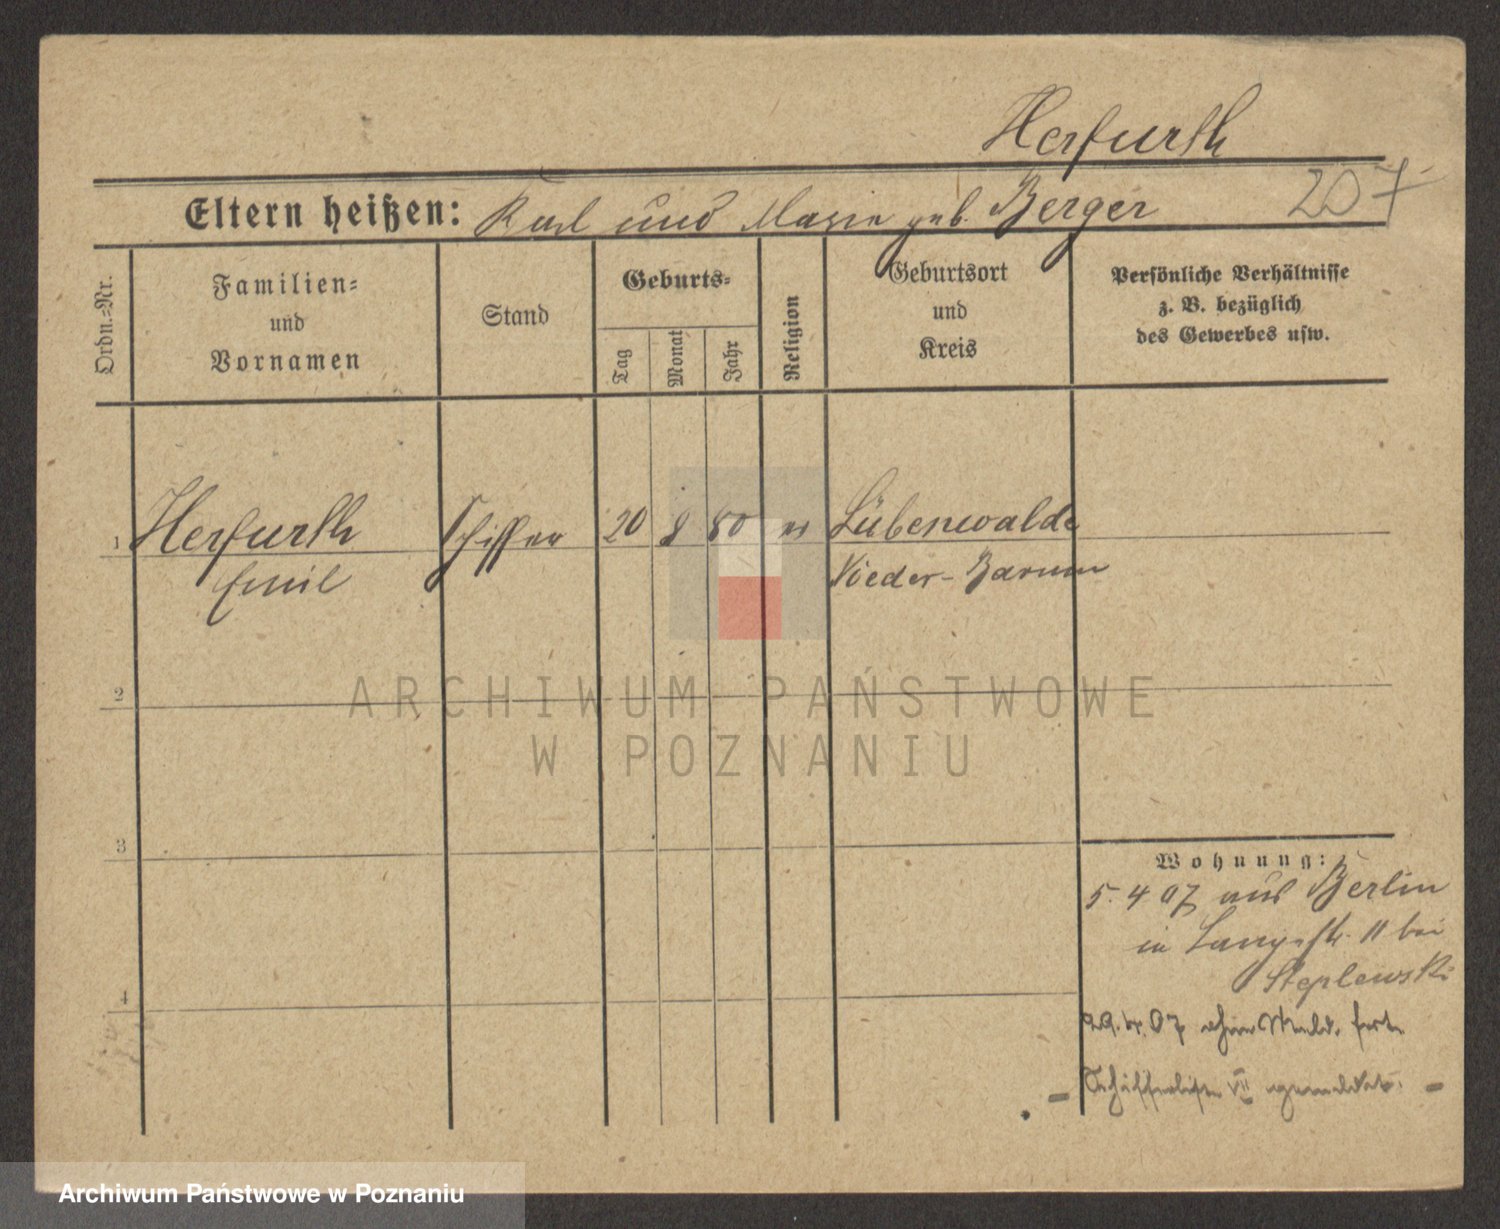 Herfurth
Eltern heißen: Karl und Marie geb. Berger 207
Ordn.=Nr.
Familien=
und
Vornamen
Stand
Geburts=
Tag
Monat
Jahr
Religion
Geburtsort
und
Kreis
Persönliche Verhältnisse
z. B. bezüglich
des Gewerbes usw.
1 Herfurth Schiffer 20 8 80 ev Lübenwalde
Emil Nieder-Barnim
2
ARCHIWUM PAŃSTWOWE
W POZNANIU
3
Wohnung:
5. 4 07 aus Berlin
in Langestr. 11 bei
Steplewski
4
29. 4. 07 ohne Meld. fort
Schifferliste VII gemeldet.
Archiwum Państwowe w Poznaniu